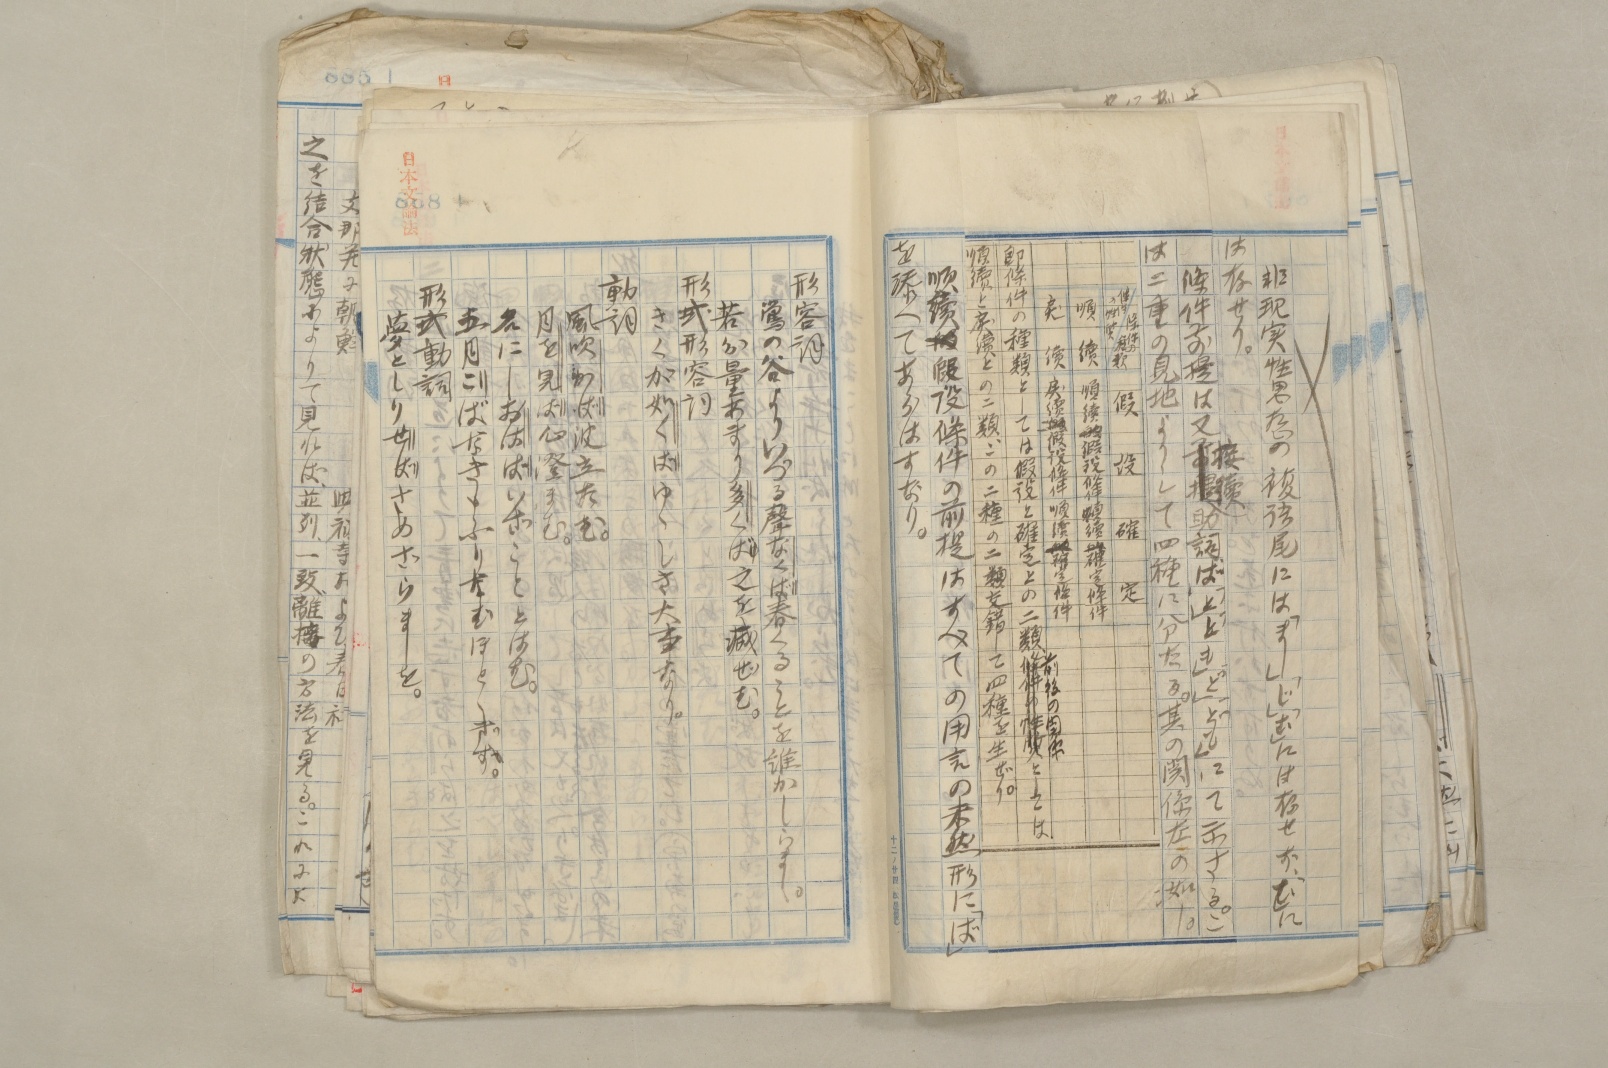 非現実性思想の複語尾には「まし」「じ」「む」には存せず、「む」に
は存せり。
條件前提は又接續助詞「ば」「と」「とも」「ど」「ども」にて示さる。こ
は二重の見地よりして四種に分たる。其の関係左の如し。
假設 確定
順續 順續假設條件 順續確定條件
戻續 戻續假設條件 順續確定條件
即條件の種類としては假設と確定との二類 前後の関係としては
順續と戻續との二類、この二種の二類交錯して四種を生ぜり。
順續假設條件の前提はすべての用言の未然形に「ば」
を添へてあらはすなり。
形容詞
鶯の谷よりいづる聲なくば春くることを誰かしらまし。
若分量あまり多くば之を減せむ。
形式形容詞
さくが如くばゆゝしき大事なり。
動詞
風吹かば波立たむ。
月を見ば心澄まむ。
名にしおはばいざこととはむ。
五月こばなきもふりなむほとゝぎす。
形式動詞
夢としりせばさめざらましを。
日本文論法
之を結合状態よりて見れば、並列、一致、離接の方法を見る。これによ